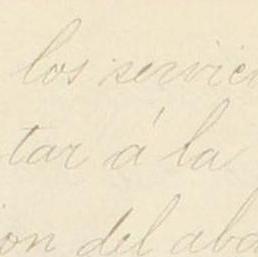 los servicie
tar á la
ion del aba